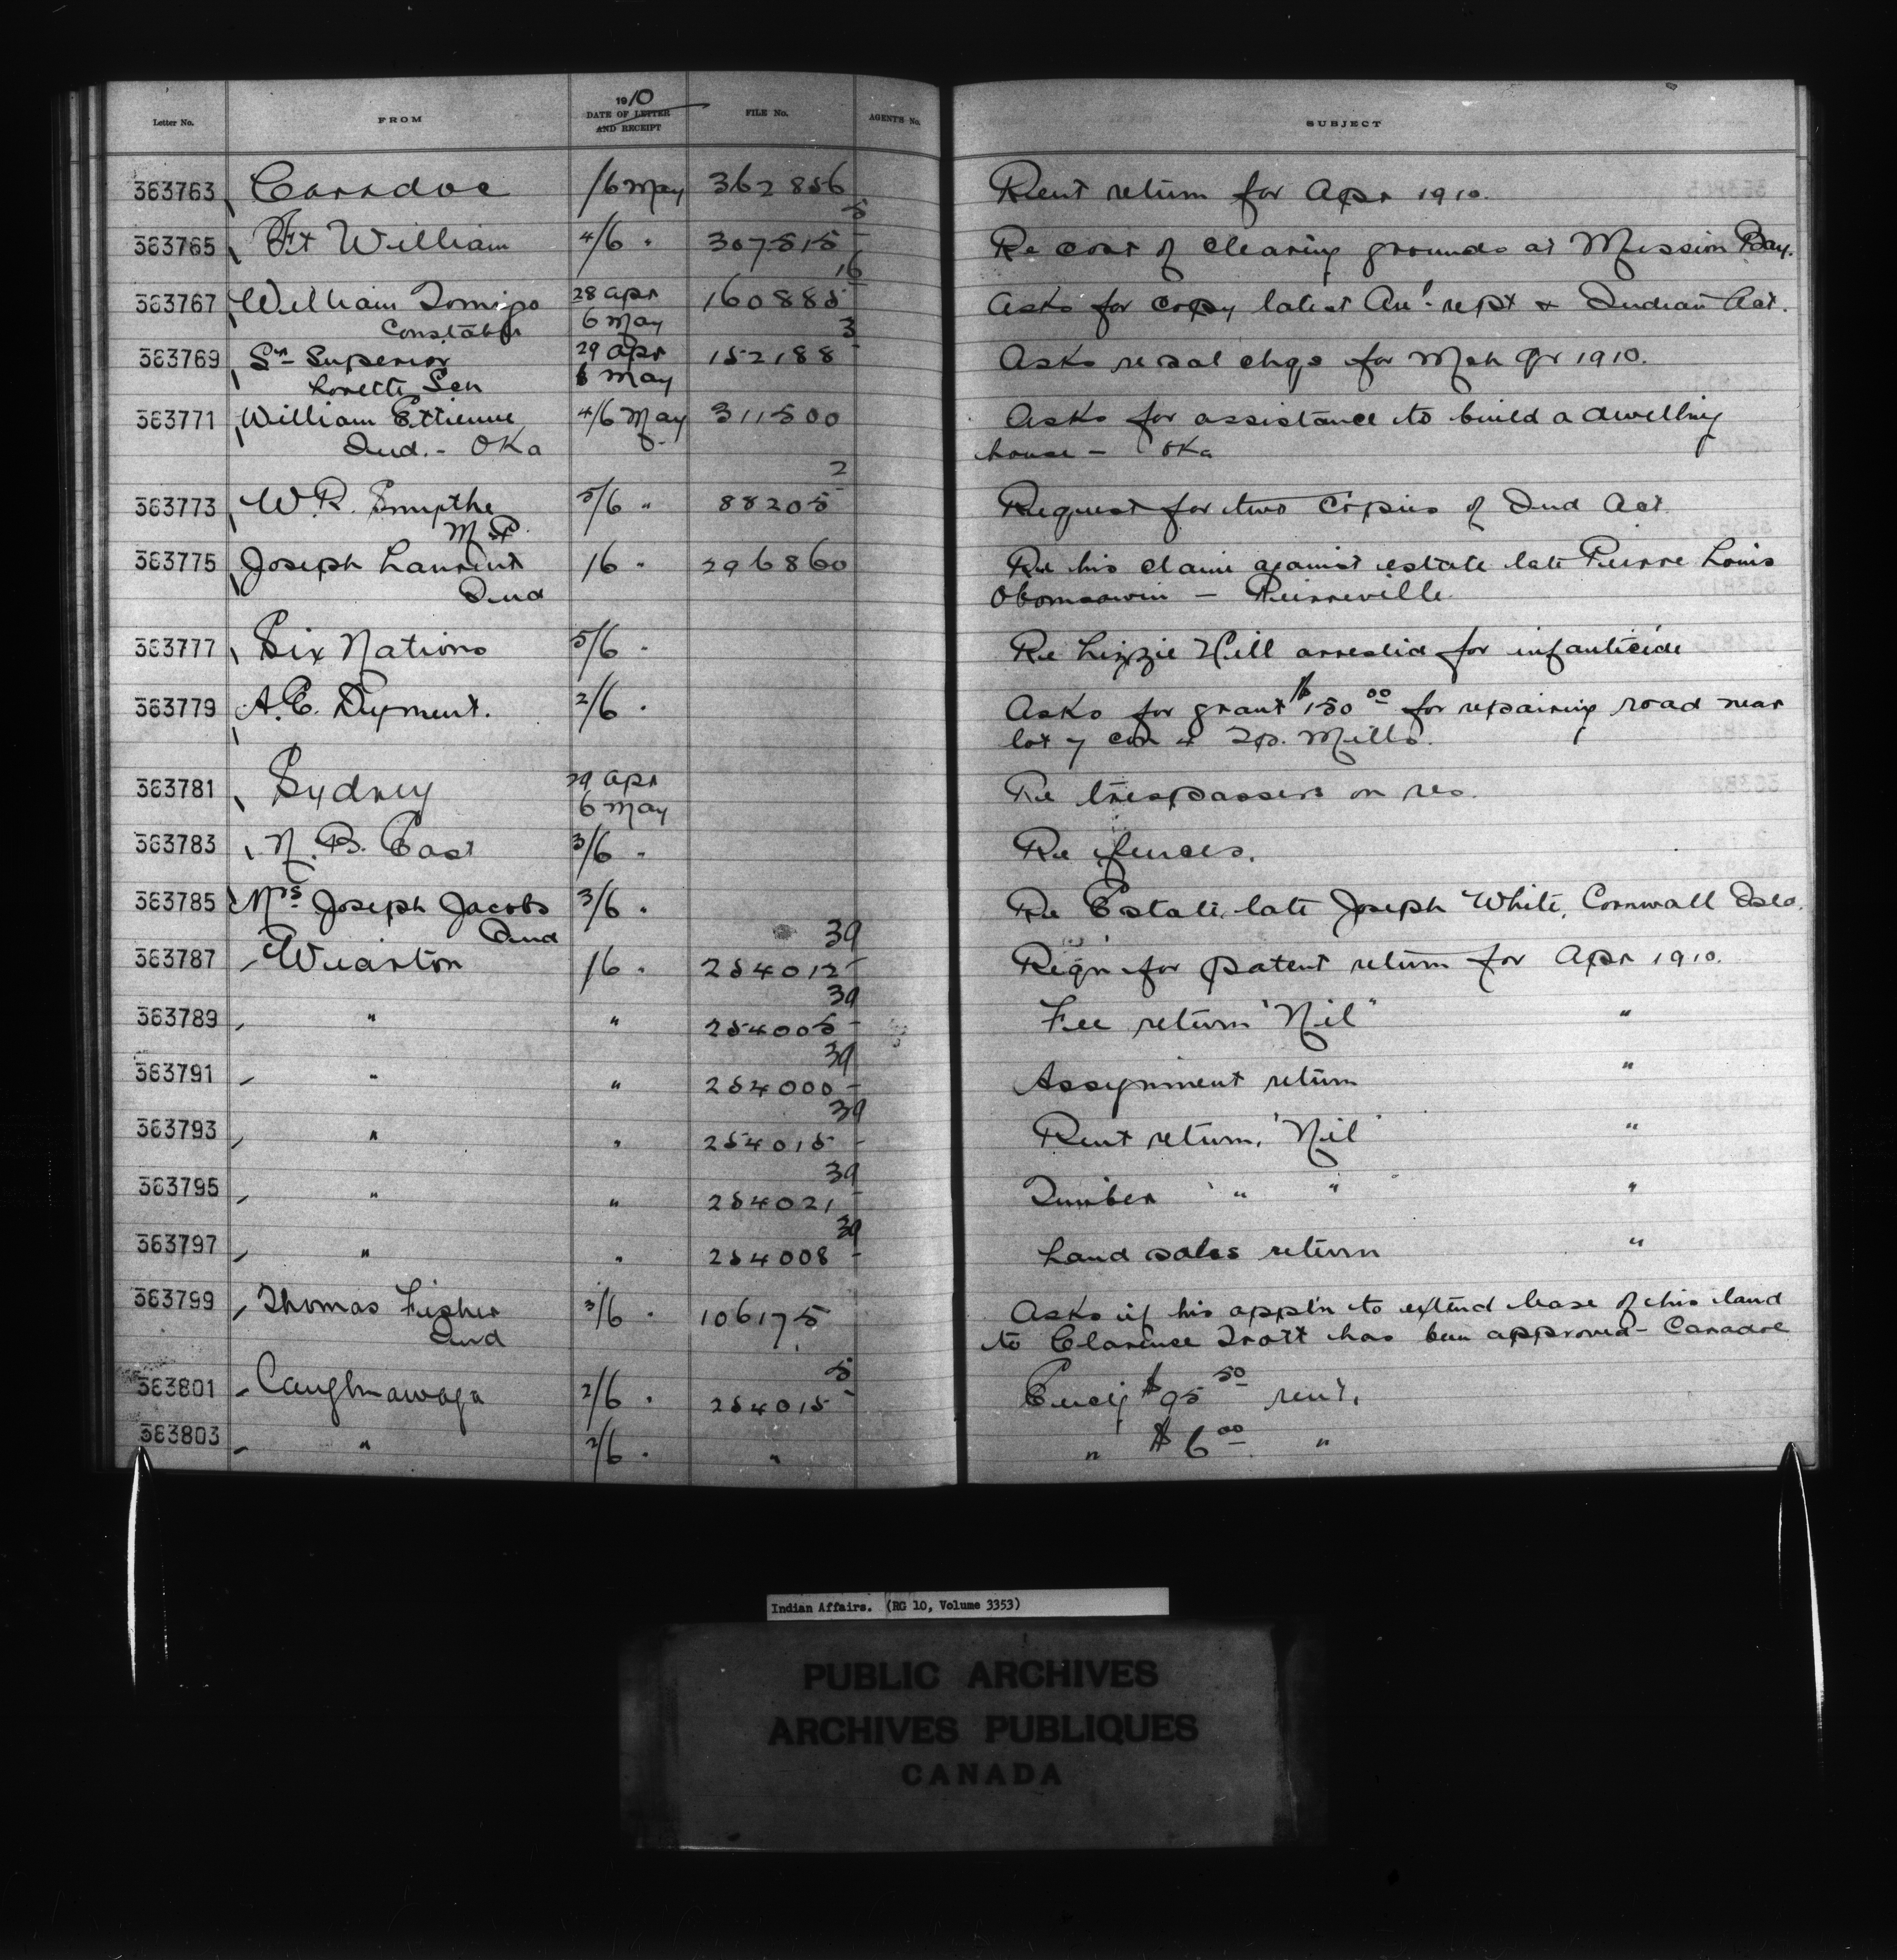 Letter No. FROM 1910 DATE OF LETTER AND RECEIPT FILE No. AGENTS No. SUBJECT
363763 Caradoc /6 May 362856 Rent return for Apr 1910.
363765 Ft William 4/6 " 307515-5 Re cost of clearing grounds at Mission Bay.
363767 William 28 Apr 160885-16 Asks for copy latest Anl. rept & Indian Act.
Constable 6 May
363769 Sr Superior 29 Apr 152188-3 Asks re sal chgs for Mch qr 1910.
Lorette Sch 6 May
363771 William Ettienne 4/6 May 311500 Asks for assistance to build a dwelling
Ind. - Oka house - Oka
363773 W. R. Smythe 5/6 " 88205-2 Request for two copies of Ind Act
M.P.
363775 Joseph Laurent /6 " 296860 Re his claim against estate late Pierre Louis
Ind Obomsawin - Pierreville.
363777 Six Nations 5/6 " Re Lizzie Hill arrested for infanticide
363779 A. E. Dyment. 2/6 " Asks for grant $150 00 for repairing road near
lot 7 con 4 Tp. Mills.
363781 Sydney 29 Apr Re trespassers on res.
6 May
363783 N. B. East 3/6 " Re fences.
363785 Mrs Joseph Jacobs 3/6 " Re Estate late Joseph White, Cornwall Isld.
Ind
363787 Wiarton /6 " 254012-39 Reqn for patent return for Apr 1910.
363789 " " 254005-39 Fee return "Nil" "
363791 " " 254000-39 Assignment return "
363793 " " 254015-39 Rent return, "Nil" "
363795 " " 254021-39 Timber " " "
363797 " " 254008-39 Land sales return "
363799 Thomas Fisher 3/6 " 106175 Asks if his appl'n to extend lease of his land
Ind to Clarence Trott has been approved - Caradoc
363801 Caughnawaga 2/6 " 254015-5 Encl'g $95 50 rent.
363803 " 2/6 " " " $6 00 "
Indian Affairs. (RG 10, Volume 3353)
PUBLIC ARCHIVES
ARCHIVES PUBLIQUES
CANADA